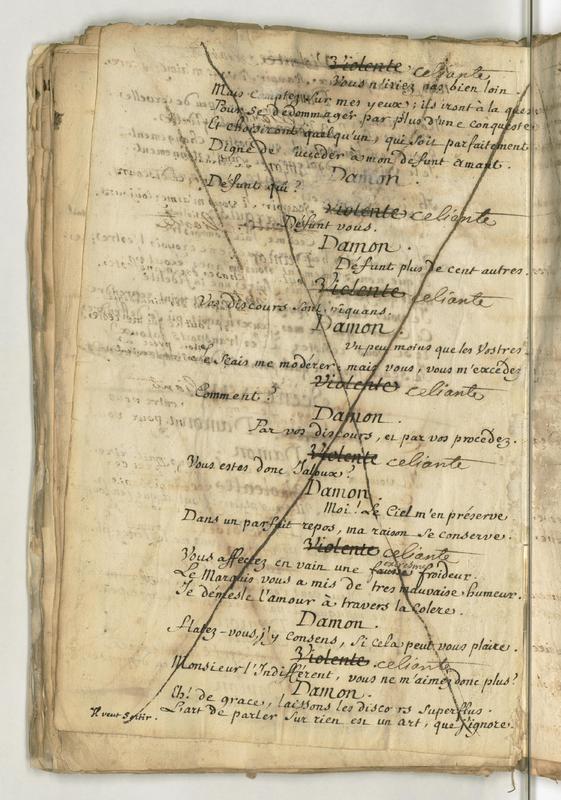 Violente celiante
Vous n'iriez pas bien loin
Mais comptez sur mes yeux; ils iront à la
Pour se dédommager par plus d'une conqueste
Et choisiront quelqu'un, qui soit parfaitement
Digne de succéder à mon défunt amant.
Damon.
Défunt qui?
Violente celiante
Défunt vous.
Damon.
Défunt plus de cent autres.
Violente celiante
Vos discours sont piquans.
Damon.
Un peu moins que les Vostres.
Je Sçais me modérer; mais vous, vous m'excédez
Violente celiante
Comment?
Damon.
Par vos discours, et par vos procédez.
Violente celiante
Vous estes donc Jaloux?
Damon.
Moi! Le Ciel m'en préserve
Dans un parfait repos, ma raison se conserve.
Violente celiante
Vous affectez en vain une fausse extresme froideur.
Le Marquis vous a mis de tres mauvaise humeur.
Je démesle l'amour à travers la Colere.
Damon.
Flatez-vous, j'y consens, si cela peut vous plaire.
Violente celiante
Monsieur l'Indifférent, vous ne m'aimez donc plus?
Damon.
Eh! de grace, laissons les discours Superflus.
L'art de parler Sur rien est un art, que j'ignore.
Il veut Sortir.